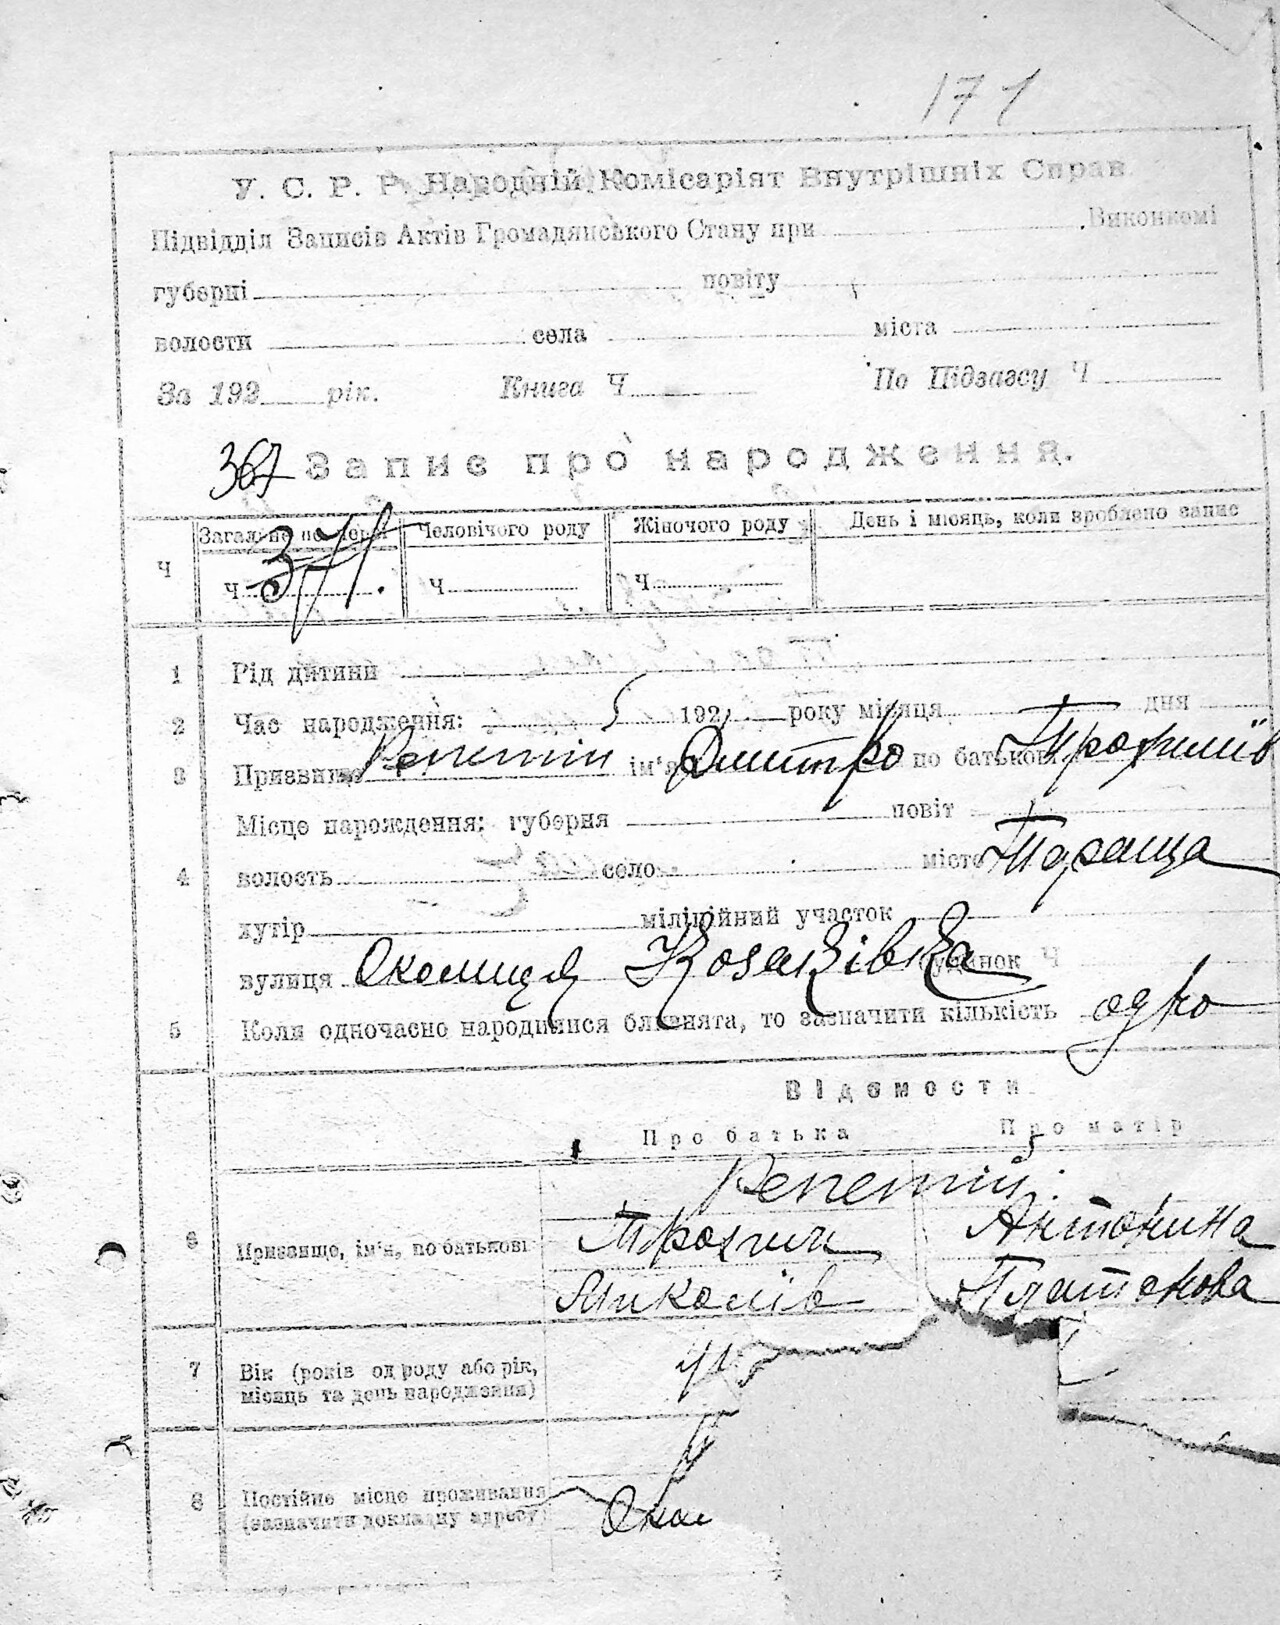 171
У. С. Р. Р. Народній Комісаріят Внутрішніх Справ
Підвідділ Записів Актів Громадянського Стану при Виконкомі
губерні повіту
волости села міста
За 192 рік. Книга Ч По Підзагсу Ч
367 Запис про народження.
Ч Загальне Человічого роду Жіночого роду День і місяць, коли зроблено запис
Ч 371. Ч Ч
1 Рід дитини
2 Час народження: 192 року місяця дня
3 Призвище Репетій ім'я Дмитро по батькові Трохимів
Місце народження: губерня повіт
4 волость село місто Тараща
хутір міліційний участок
вулиця Околиця Козаківка будинок Ч
5 Коли одночасно народилися близнята, то зазначити кількість одно
Відомости
Про батька Про матір
Репетій
6 Призвище, ім'я, по батькові Трохим Антонина
Миколів Платонова
7 Вік (років од роду або рік,
місяць та день народження)
8 Постійне місце проживання
(зазначити докладну адресу) Окол